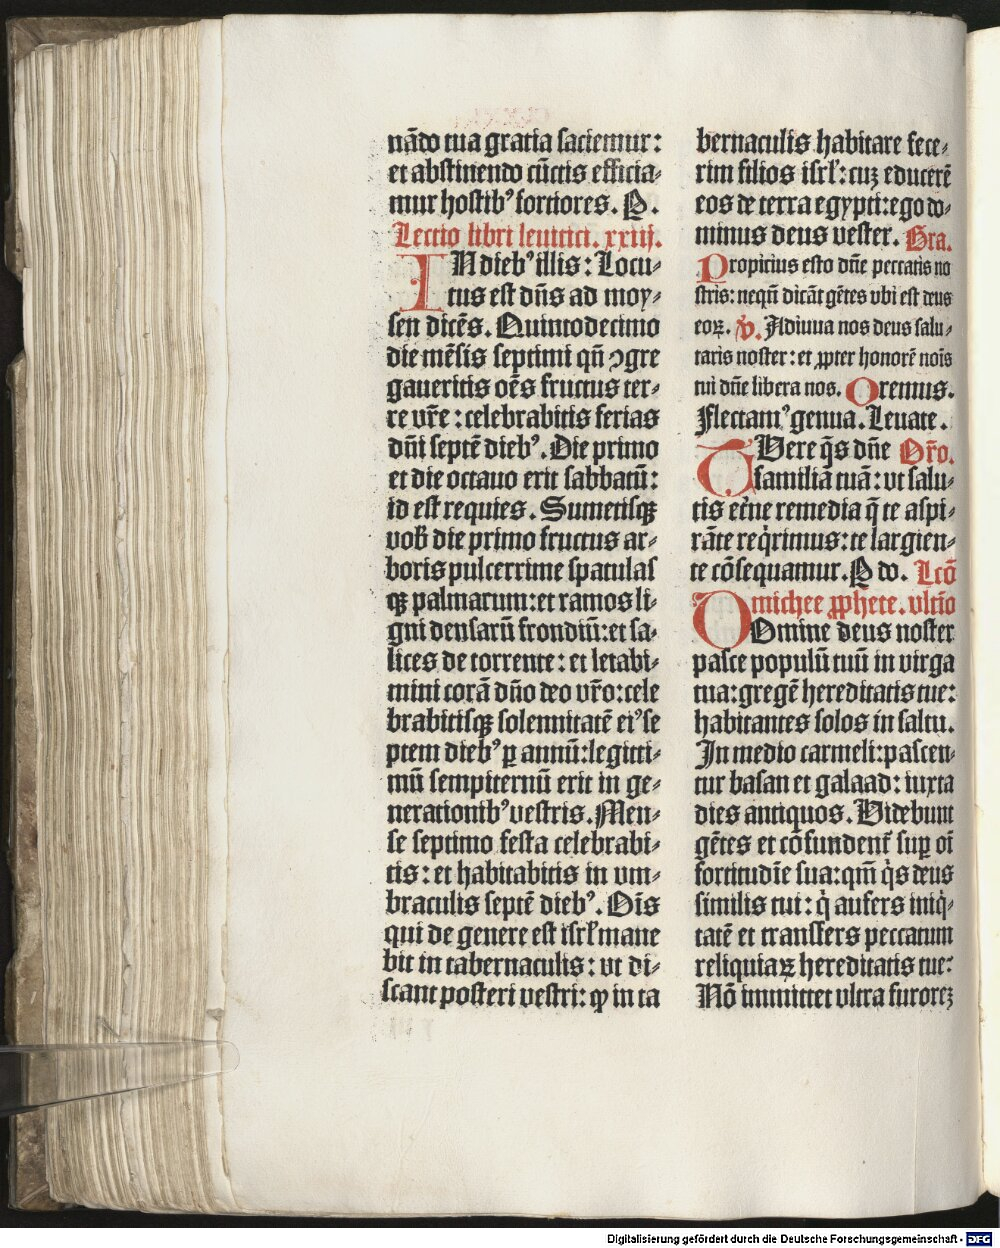 nãdo tua gratia saciemur:
et abstinendo cũctis efficia⸗
mur hostibꝰ fortiores. P.
Lectio libri leuitici. xxiij.
IN diebꝰ illis: Locu⸗
tus est dñs ad moy⸗
sen dicẽs. Quintodecimo
die mẽsis septimi qñ ꝯgre
gaueritis oẽs fructus ter⸗
re vr̃e: celebrabitis ferias
dñi septẽ diebꝰ. Die primo
et die octauo erit sabbatũ:
id est requies. Sumetisqꝫ
vob̃ die primo fructus ar⸗
boris pulcerrime spatulas
qꝫ palmarum: et ramos li⸗
gni densarũ frondiũ: et sa⸗
lices de torrente: et letabi⸗
mini corã dño deo vr̃o: cele
brabitisqꝫ solennitatẽ eiꝰ se
ptem diebꝰ ꝑ annũ: legitti⸗
mũ sempiternũ erit in ge⸗
nerationibꝰ vestris. Men⸗
se septimo festa celebrabi⸗
tis: et habitabitis in vm⸗
braculis septẽ diebꝰ. Oĩs
qui de genere est isrl̃ mane
bit in tabernaculis: vt di⸗
scant posteri vestri: ꝙ in ta
bernaculis habitare fece⸗
rim filios isrl̃: cuꝫ educerẽ
eos de terra egypti: ego do⸗
minus deus vester. Gra.
Propicius esto dñe peccatis no
stris: neqñ dicãt gẽtes vbi est deus
eoꝝ. v̓. Adiuua nos deus salu⸗
taris noster: et ꝓpter honorẽ noĩs
tui dñe libera nos. Oremus.
Flectamꝰ genua. Leuate.
THere q̃s dñe Or̃o.
familiã tuã: vt salu⸗
tis et̃ne remedia q̃ te aspi⸗
rãte reqͥrimus: te largien⸗
te cõsequamur. P do. Lcõ
michee ꝓphete. vltĩo
DOmine deus noster
pasce populũ tuũ in virga
tua: gregẽ hereditatis tue:
habitantes solos in saltu.
In medio carmeli: pascen⸗
tur basan et galaad: iuxta
dies antiquos. Videbunt
gẽtes et cõfundent᷑ suꝑ oĩ
fortitudĩe sua: qm̃ qͥs deus
similis tui: qͥ aufers iniqͥ⸗
tatẽ et transfers peccatum
reliquiaꝝ hereditatis tue:
Nõ immittet vltra furoreꝫ
Digitalisierung gefördert durch die Deutsche Forschungsgemeinschaft - DFG